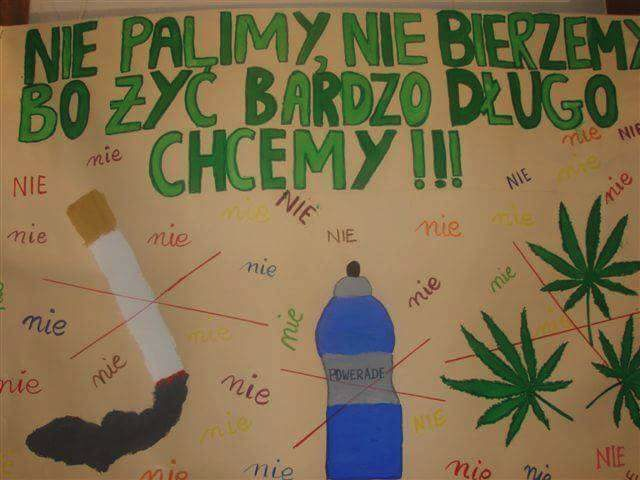 NIE PALIMY, NIE BIERZEMY
BO ŻYĆ BARDZO DŁUGO
CHCEMY !!!
nie
nie
NIE
NIE
nie
NIE
nie
nie
NIE
nie
nie
nie
NIE
nie
nie
nie
nie
nie
nie
nie
nie
nie
nie
POWERADE
nie
nie
nie
NIE
nie
NIE
nie
nie
nie
nie